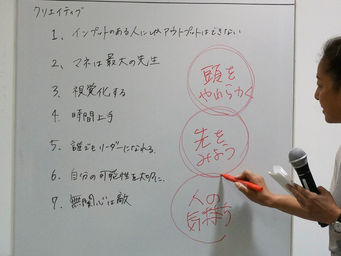 クリエイティブ
1、インプットのある人にしかアウトプットはできない
2、マネは最大の先生
3、視覚化する
4、時間上手
5、誰でもリーダーになれる。
6、自分の可能性を大切に、
7、無関心は敵
頭を
やわらかく
先を
みよう
人の
気持ち